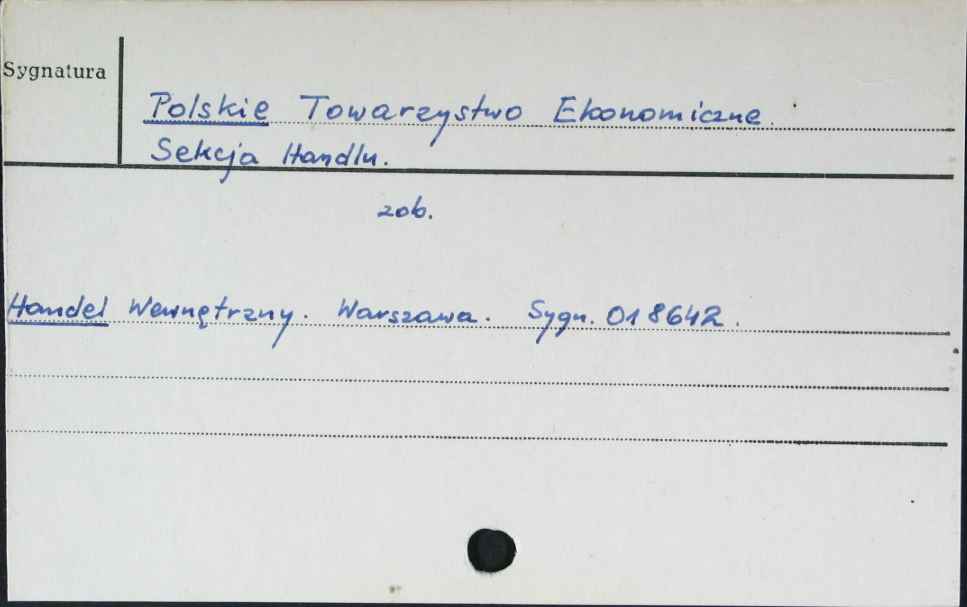 Sygnatura
Polskie Towarzystwo Ekonomiczne.
Sekcja Handlu.
zob.
Handel Wewnętrzny. Warszawa. Sygn. 018642.